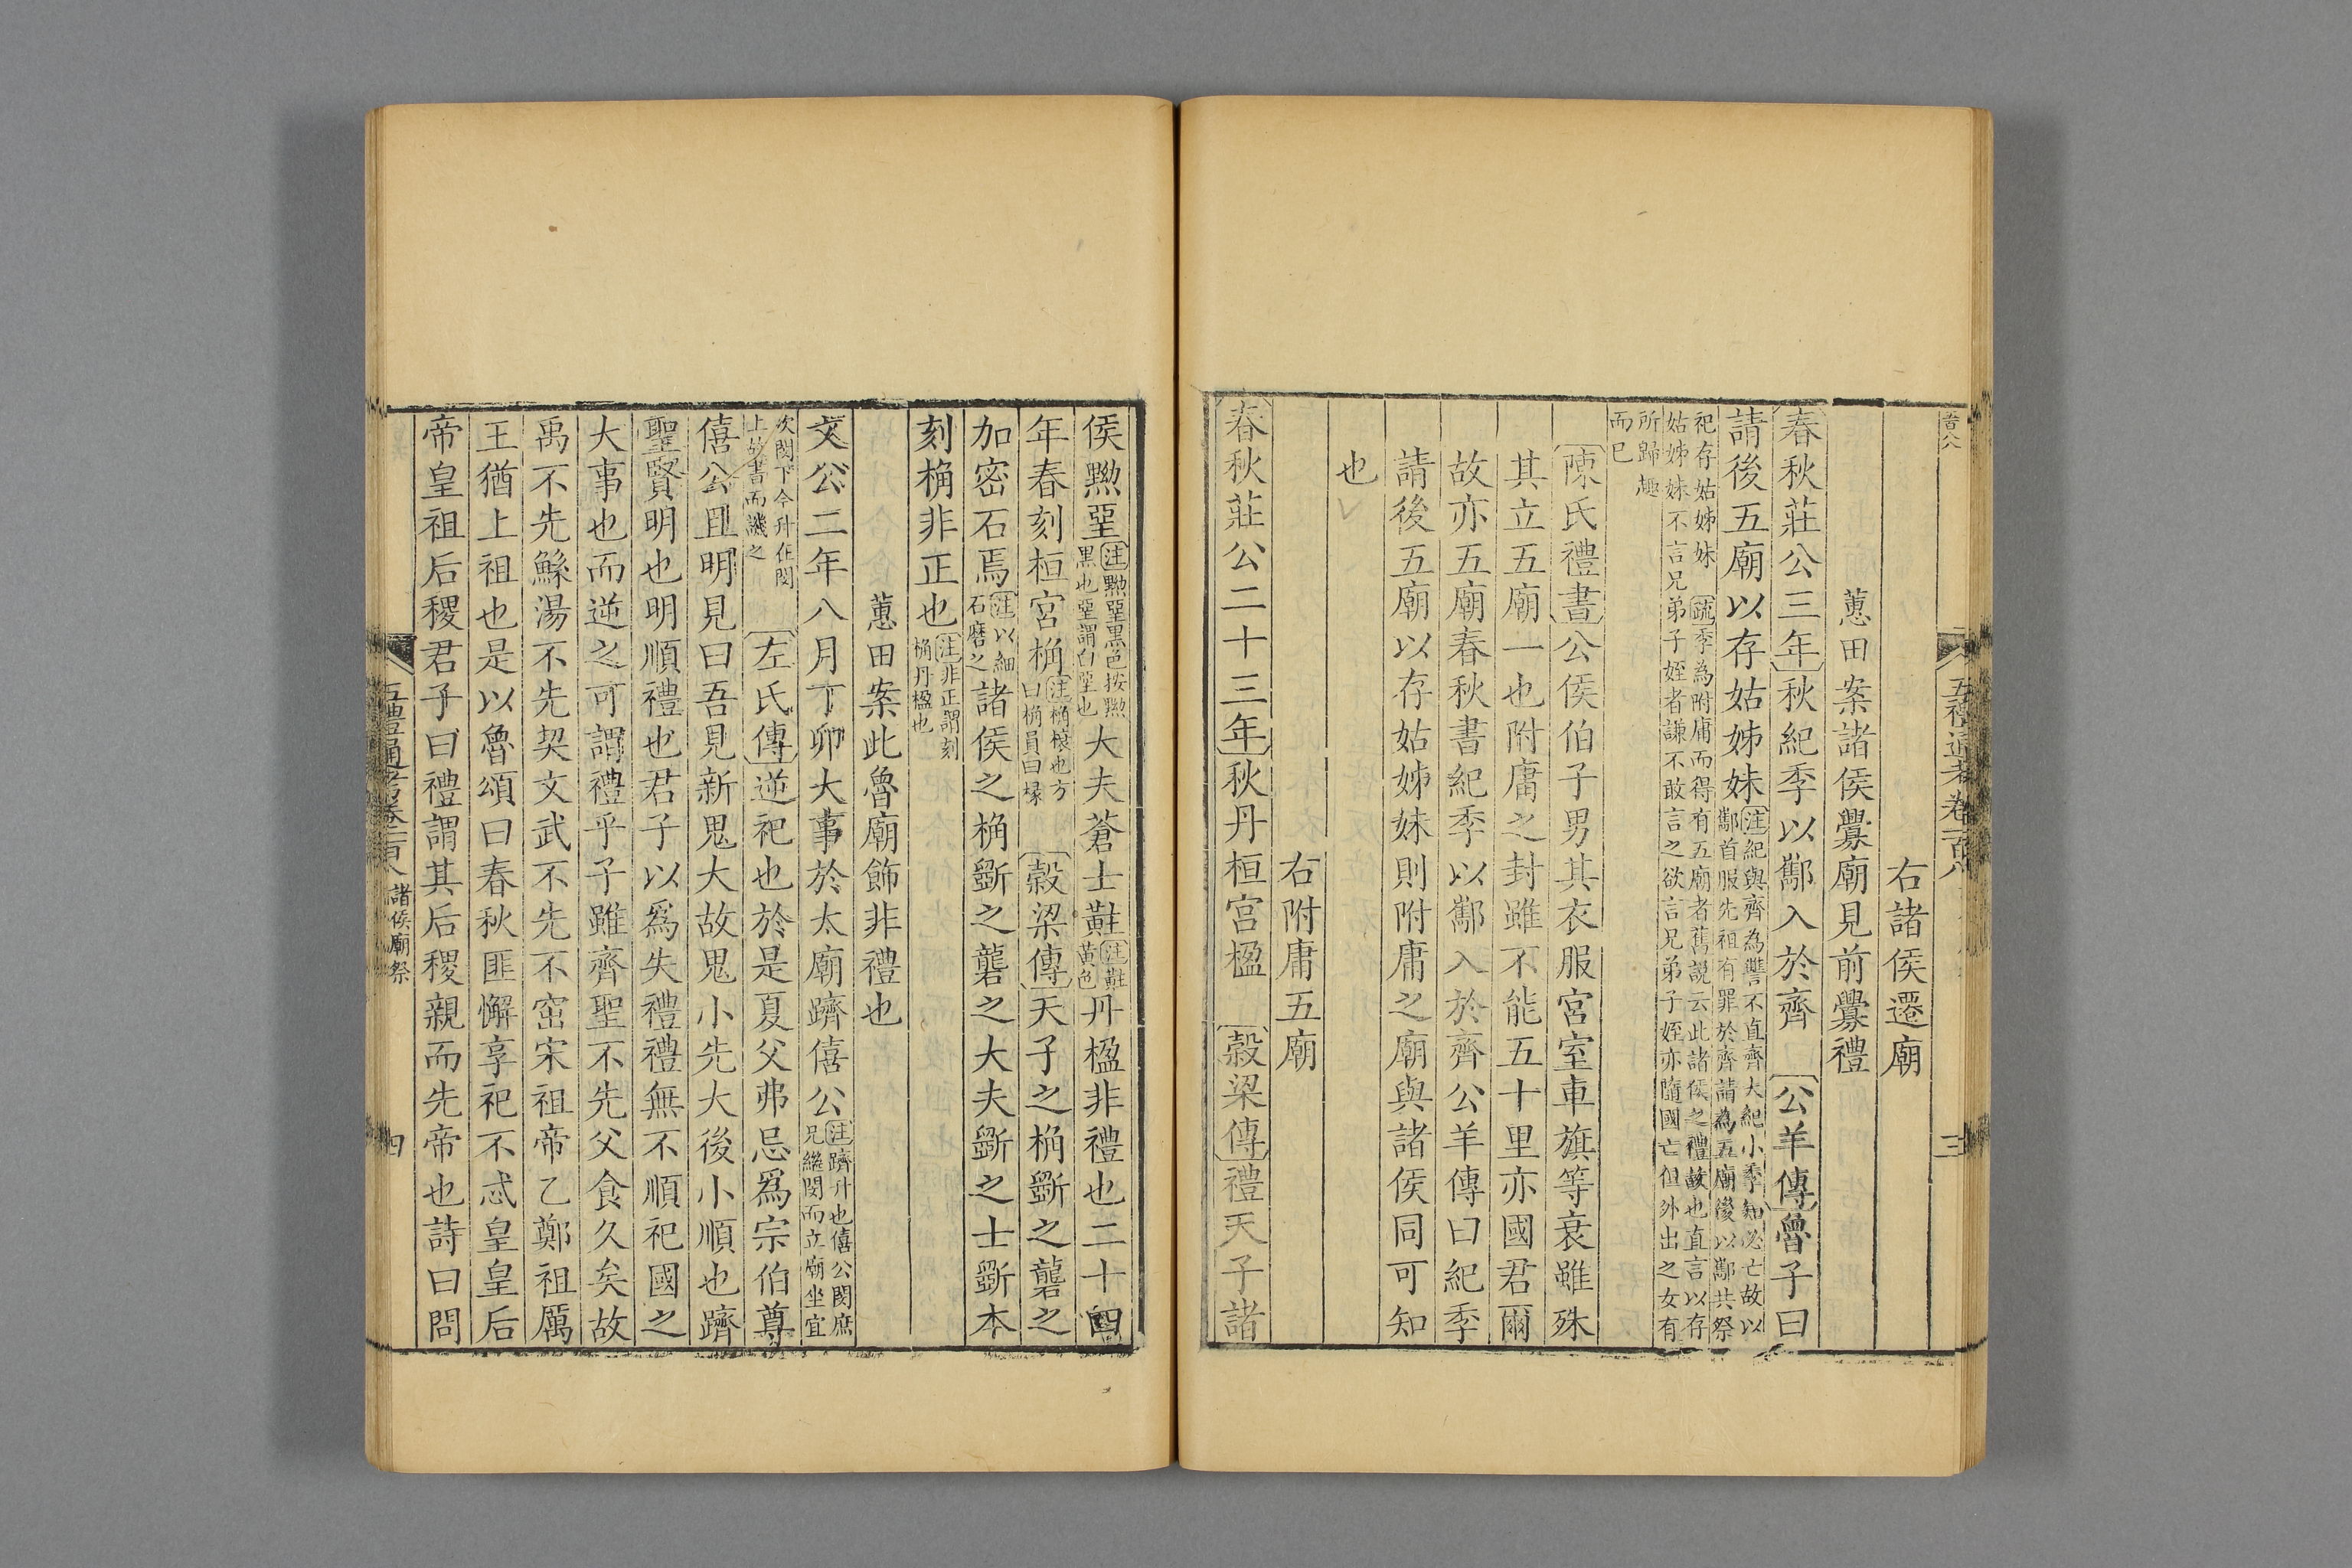 五禮通考卷一百八
三
右諸侯遷廟
蕙田案諸侯釁廟見前釁禮
春秋莊公三年秋紀季以酅入於齊 公羊傳魯子曰
請後五廟以存姑姊妹注紀與齊為讐不直齊大紀小季知必亡故以酅首服先祖有罪於齊請為五廟後以酅共祭
祀存姑姊妹 疏季為附庸而得有五廟者舊說云此諸侯之禮故也直言以存姑姊妹不言兄弟子姪者謙不敢言之欲言兄弟子姪亦隨國亡但外出之女有
所歸趣而已
陳氏禮書公侯伯子男其衣服宮室車旗等衰雖殊
其立五廟一也附庸之封雖不能五十里亦國君爾
故亦五廟春秋書紀季以酅入於齊公羊傳曰紀季
請後五廟以存姑姊妹則附庸之廟與諸侯同可知
也
右附庸五廟
春秋莊公二十三年秋丹桓宮楹 穀梁傳禮天子諸
侯黝堊注黝堊黑色按黝黑也堊謂白堊也大夫蒼士黈注黈黃色丹楹非禮也二十四
年春刻桓宮桷注桷榱也方曰桷員曰椽 穀梁傳天子之桷斲之礱之
加密石焉注以細石磨之諸侯之桷斲之礱之大夫斲之士斲本
刻桷非正也注非正謂刻桷丹楹也
蕙田案此魯廟飾非禮也
文公二年八月丁卯大事於太廟躋僖公注躋升也僖公閔庶兄繼閔而立廟坐宜
次閔下今升在閔上故書而譏之 左氏傳逆祀也於是夏父弗忌爲宗伯尊
僖公且明見曰吾見新鬼大故鬼小先大後小順也躋
聖賢明也明順禮也君子以爲失禮禮無不順祀國之
大事也而逆之可謂禮乎子雖齊聖不先父食久矣故
禹不先鯀湯不先契文武不先不窋宋祖帝乙鄭祖厲
王猶上祖也是以魯頌曰春秋匪懈享祀不忒皇皇后
帝皇祖后稷君子曰禮謂其后稷親而先帝也詩曰問
五禮通考卷一百八 諸侯廟祭
四